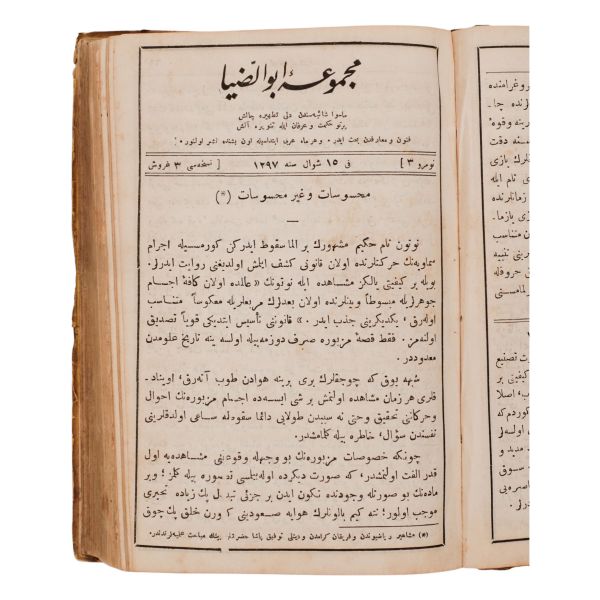 مجموعهٔ ابوالضيا
ماسوا شائبه‌سندن دلی تطهیره چالش
پرتو حکمت و عرفان ایله تنویره آلش
فنون و معارفدن بحث ایدر . و هر ماه عربی ابتداسیله اون بشنده نشر اولنور .
نومرو ٣ ] فی ١٥ شوال سنه ١٢٩٧ [ نسخه‌سی ٣ غروش
محسوسات و غیر محسوسات (*)
نوتون نام حکیم مشهورك بر الما سقوط ایدرکن کورمسیله اجرام
سماویه‌نك حرکتلرنده اولان قانونی کشف ایتمش اولدیغنی روایت ایدرلر.
بویله بر کیفیتی یالکز مشاهده ایله نوتونك « عالمده اولان کافهٔ اجسام
جوهرلریله مبسوطاً وبینلرنده اولان بعدلرك مربعلریله معکوساً متناسب
اوله‌رق ، یکدیکرینی جذب ایدر . » قانوننی تأسیس ایتدیکی قویاً تصدیق
اولنه‌مز . فقط قصهٔ مزبوره صرف دوزمه‌بیله اولسه ینه تاریخ علومدن
معدوددر .
شبهه یوق که چوجقلرك بری برینه هوادن طوب آته‌رق ، اویناد-
قلری هر زمان مشاهده اولنمش بر شی ایسه‌ده اجسام مزبوره‌نك احوال
وحرکاتنی تحقیق وحتی نه سببدن طولایی دائما سقوطه ساعی اولدقلرینی
نفسندن سؤال ، خاطره بیله کلمامشدر .
چونکه خصوصات مزبوره‌نك بو وجهله وقوعنی مشاهده‌یه اول
قدر الفت اولنمشدر ، که صورت دیکرده اوله‌بیلسی تصوره بیله کلمز ؛ وبر
ماده‌نك بو صورتله وجودنده تکون ایدن بر جزئی تبدل پك زیاده تحیری
موجب اولور ؛ نته کیم بالونلرك هوایه صعودینی کورن خلق پك چوق
(*) مشاهیر ریاضیوندن و فریقان کرامدن ودینلی توفیق پاشا حضرتلرینك مباحث علمیه‌لرندندر.